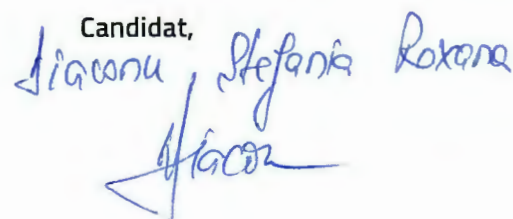 Candidat,
Diaconu Stefania Roxana
Diacon